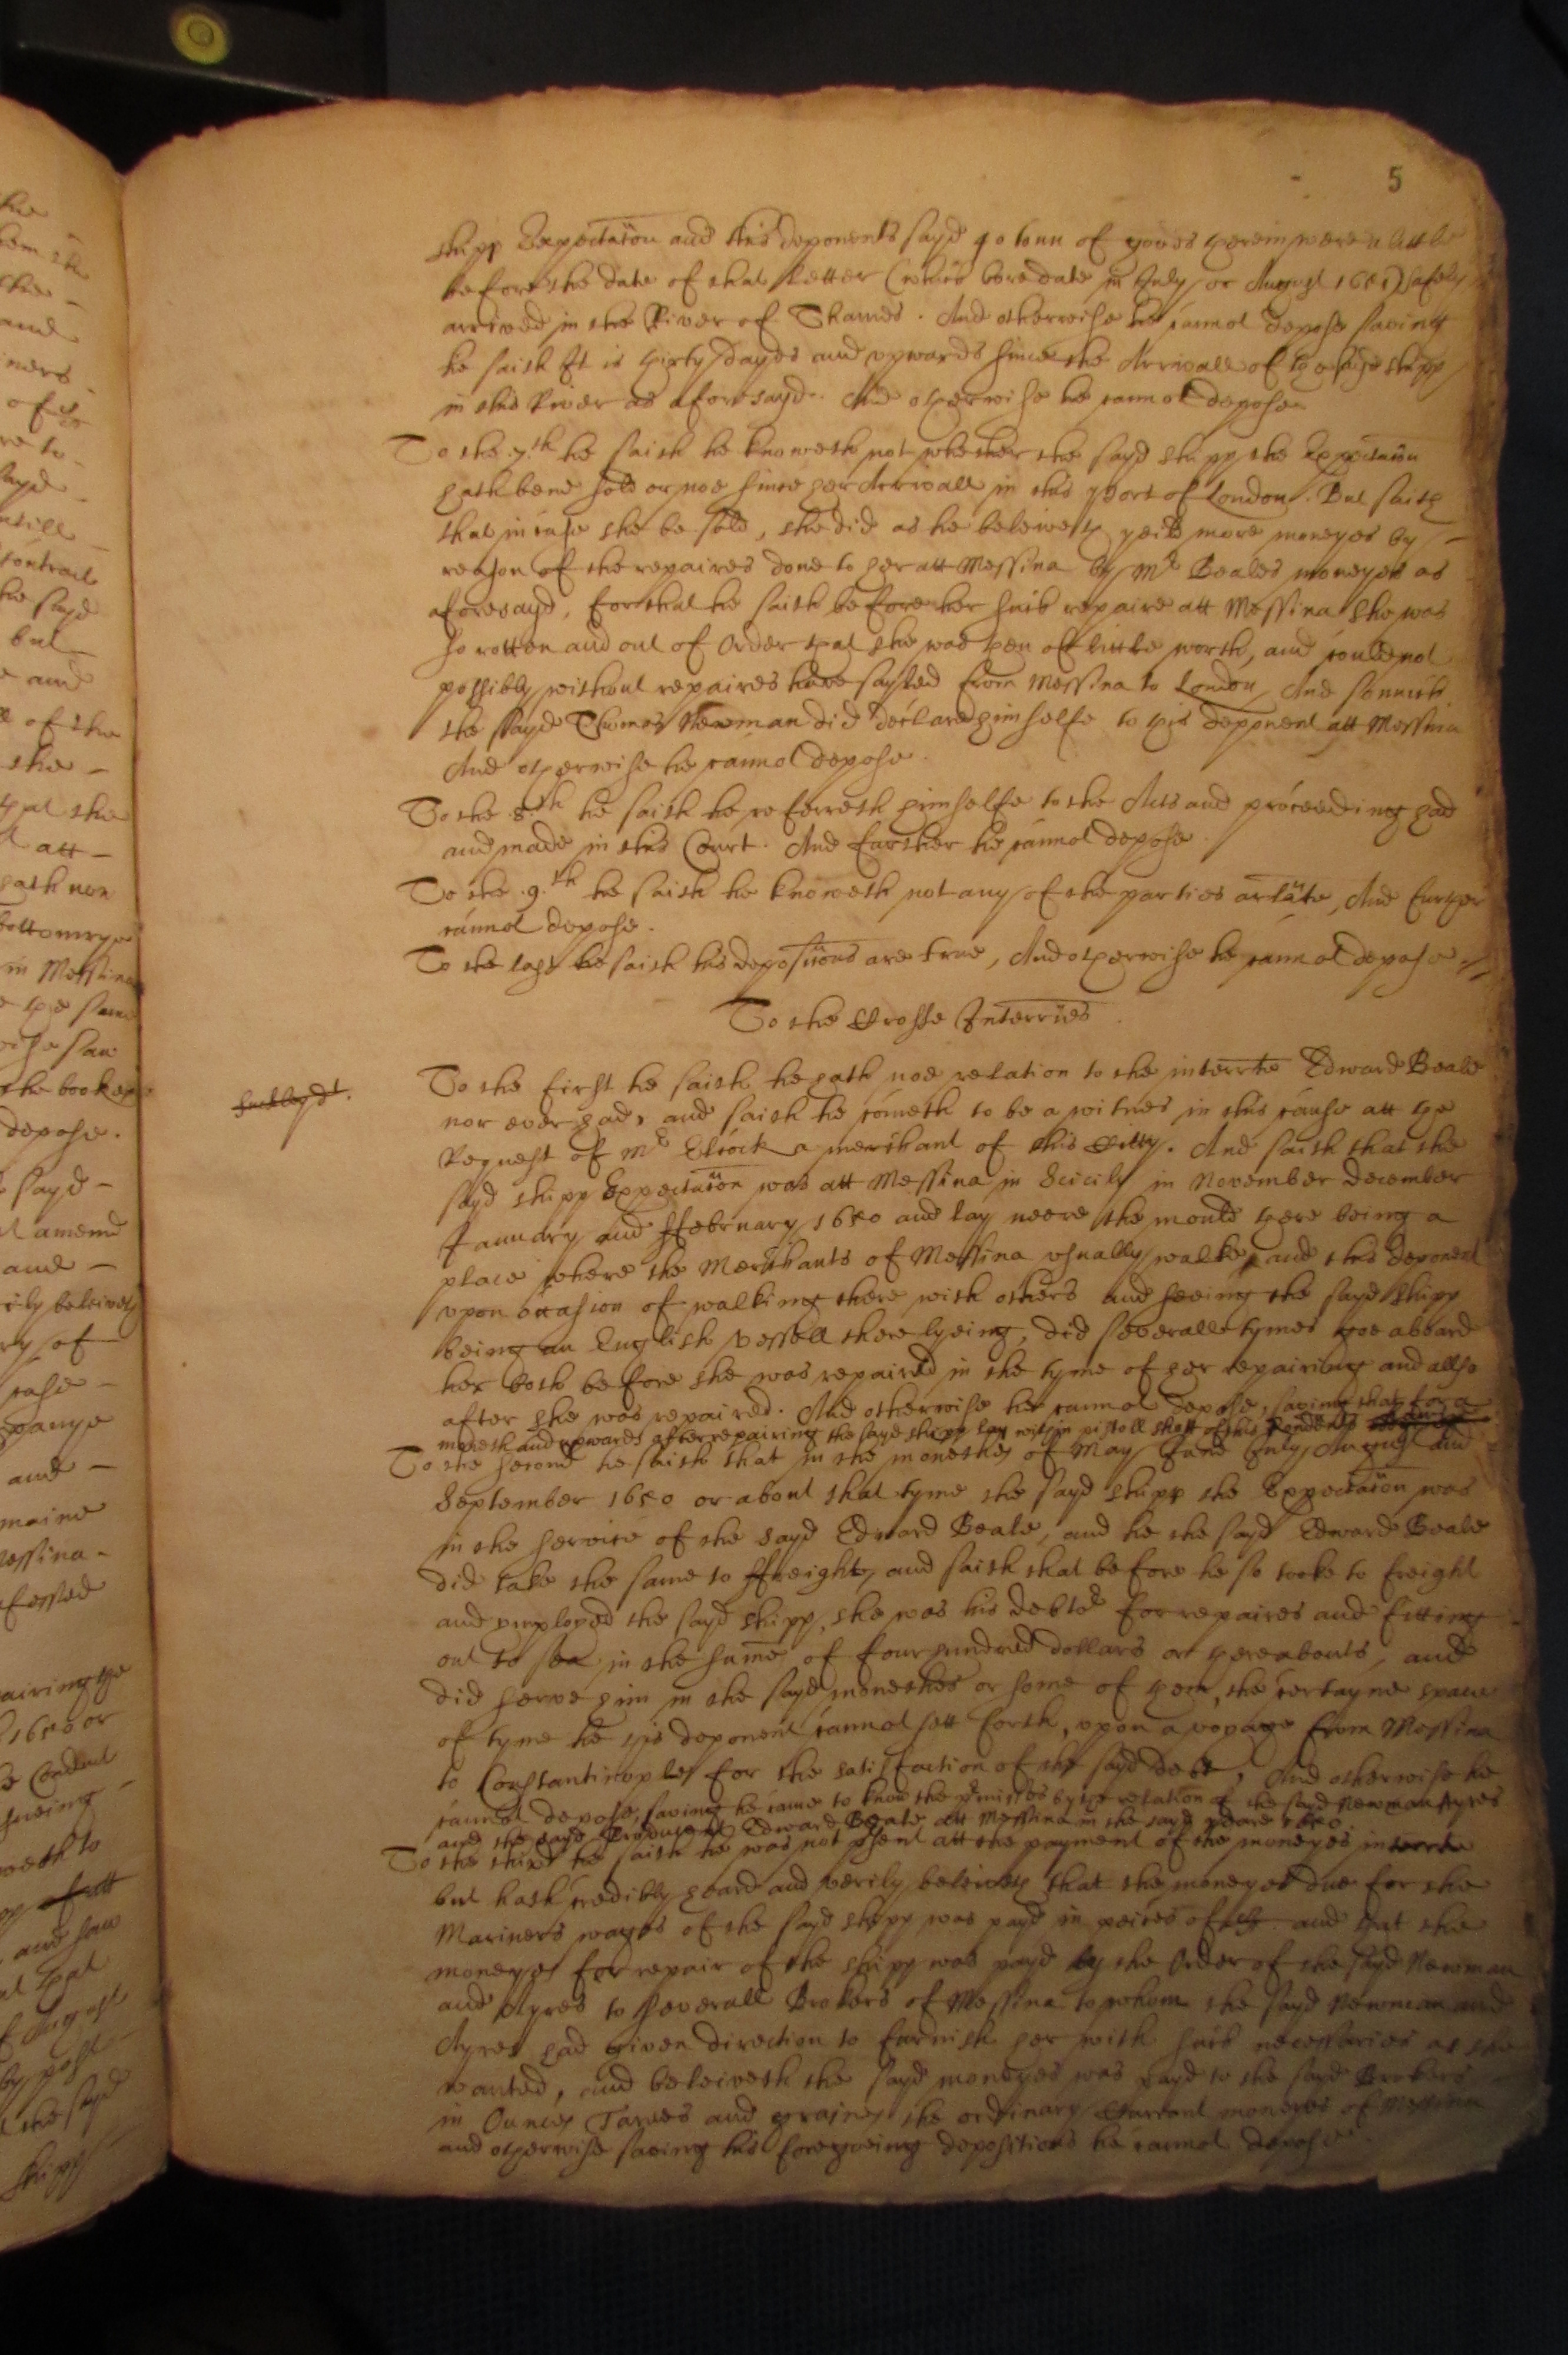 5
shipp Expectation and this deponents sayd 40 tonn of goods therein were a little
before the date of that Letter (which bore date in July or August 1651) safely
arrived in the River of Thames. And otherwise he cannot depose saving
he saith It is thirty dayes and upwards since the Arrivall of the shipp
in this River as aforesayd. And otherwise he cannot depose
To the .7.th he saith he knoweth not whether the sayd shipp the Expectation
hath bene sold or noe since her Arrivall in this Port of London. But saith
that in case she be sold, she did as he beleiveth yeild more moneyes by
reason of the repaires done to her att Messina by Mr Beales moneyes as
aforesayd, for that he saith before her such repaire att Messina she was
so rotten and out of order that she was then of little worth, and could not
possibly without repaires have sayled from Messina to London, And so much
the sayd Thomas Newman did declare himselfe to this deponent att Messina
And otherwise he cannot depose.
To the .8.th he saith he referreth himselfe to the Acts and proceeding had
and made in this Court. And farther he cannot depose.
To the .9.th he saith he knoweth not any of the parties arlate, And further
cannot depose.
To the last he saith his depositions are true, And otherwise he cannot depose.
To the Crosse Interries.
To the first he saith he hath noe relation to the interrte Edward Beale
nor ever had, and saith he cometh to be a witnes in this cause att the
Request of Mr Elcock a merchant of this Citty. And saith that the
sayd shipp Expectation was att Messina in Scicily in November December
January and ffebruary 1650 and lay neere the mould there being a
place where the Merchants of Messina usually walke, and this deponent
upon occasion of walking there with others and seeing the sayd shipp
being an English vessell there lyeing, did severall tymes goe aboard
her both before she was repaired in the tyme of her repairing and allso
after she was repaired. And otherwise he cannot depose, saving that for a
moneth and upwards after repairing the sayd shipp lay within pistoll shott of his
To the second he saith that in the monethes of May June July August and
September 1650 or about that tyme the sayd shipp the Expectation was
in the service of the sayd Edward Beale, and he the sayd Edward Beale
did take the same to ffreight, and saith that before he so tooke to freight
and employed the sayd shipp, she was his debtor for repaires and fitting
out to sea in the summe of four hundred dollars or thereabouts, and
did serve him in the sayd monethes or some of them, the certayne space
of tyme he this deponent cannot sett forth, upon a voyage from Messina
to Constantinople for the satisfaction of the sayd debt, And otherwise he
cannot depose, saving he came to know the pmisses by the relation of the sayd Newman Ayres
and the sayd Edward Beale att Messina in the sayd yeare 1650
To the third he saith he was not psent att the payment of the moneyes interrte
but hath credibly heard and verily beleiveth that the moneyes due for the
Mariners wages of the sayd shipp was payd in peices of and that the
moneyes for repair of the shipp was payd by the Order of the sayd Newman
and Ayres to severall Brokers of Messina to whom the sayd Newman and
Ayres had given direction to furnish her with such necessaries as she
wanted, and beleiveth the sayd moneyes was payd to the sayd Brokers
in Ounces Tarees and graines the ordinary Currant moneyes of Messina
and otherwise saving his foregoeing depositions he cannot depose.